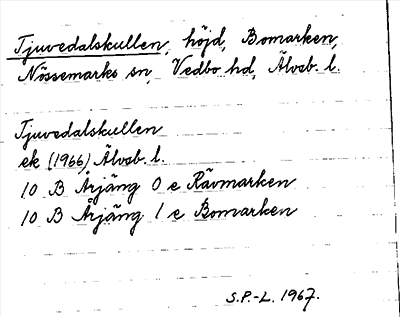 Tjuvedalskullen, höjd, Bomarken,
Nössemarks sn, Vedbo hd, Älvsb. l.
Tjuvedalskullen
ek (1966) Älvsb. l.
10 B Årjäng 0 e Rävmarken
10 B Årjäng 1 e Bomarken
S.P.-L. 1967.